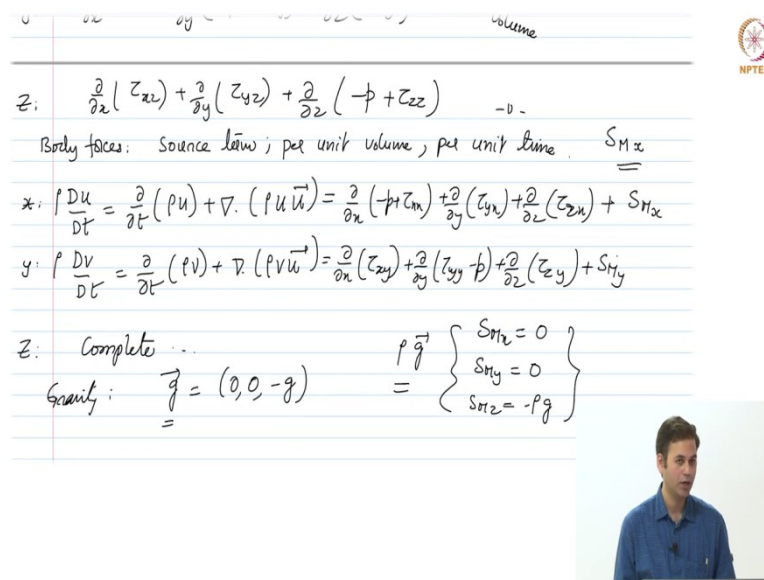 volume
NPTEL
Z: ∂/∂x (τxz) + ∂/∂y (τyz) + ∂/∂z (-p + τzz) -〃-
Body forces: Source term; per unit volume, per unit time. SMx
x: ρ Du/Dt = ∂/∂t (ρu) + ∇. (ρu u⃗) = ∂/∂x (-p+τxx) + ∂/∂y (τyx) + ∂/∂z (τzx) + SMx
y: ρ Dv/Dt = ∂/∂t (ρv) + ∇. (ρv u⃗) = ∂/∂x (τxy) + ∂/∂y (τyy -p) + ∂/∂z (τzy) + SMy
Z: Complete ...
Gravity: g⃗ = (0,0,-g) ρg⃗ = { SMx = 0
SMy = 0
SMz = -ρg }